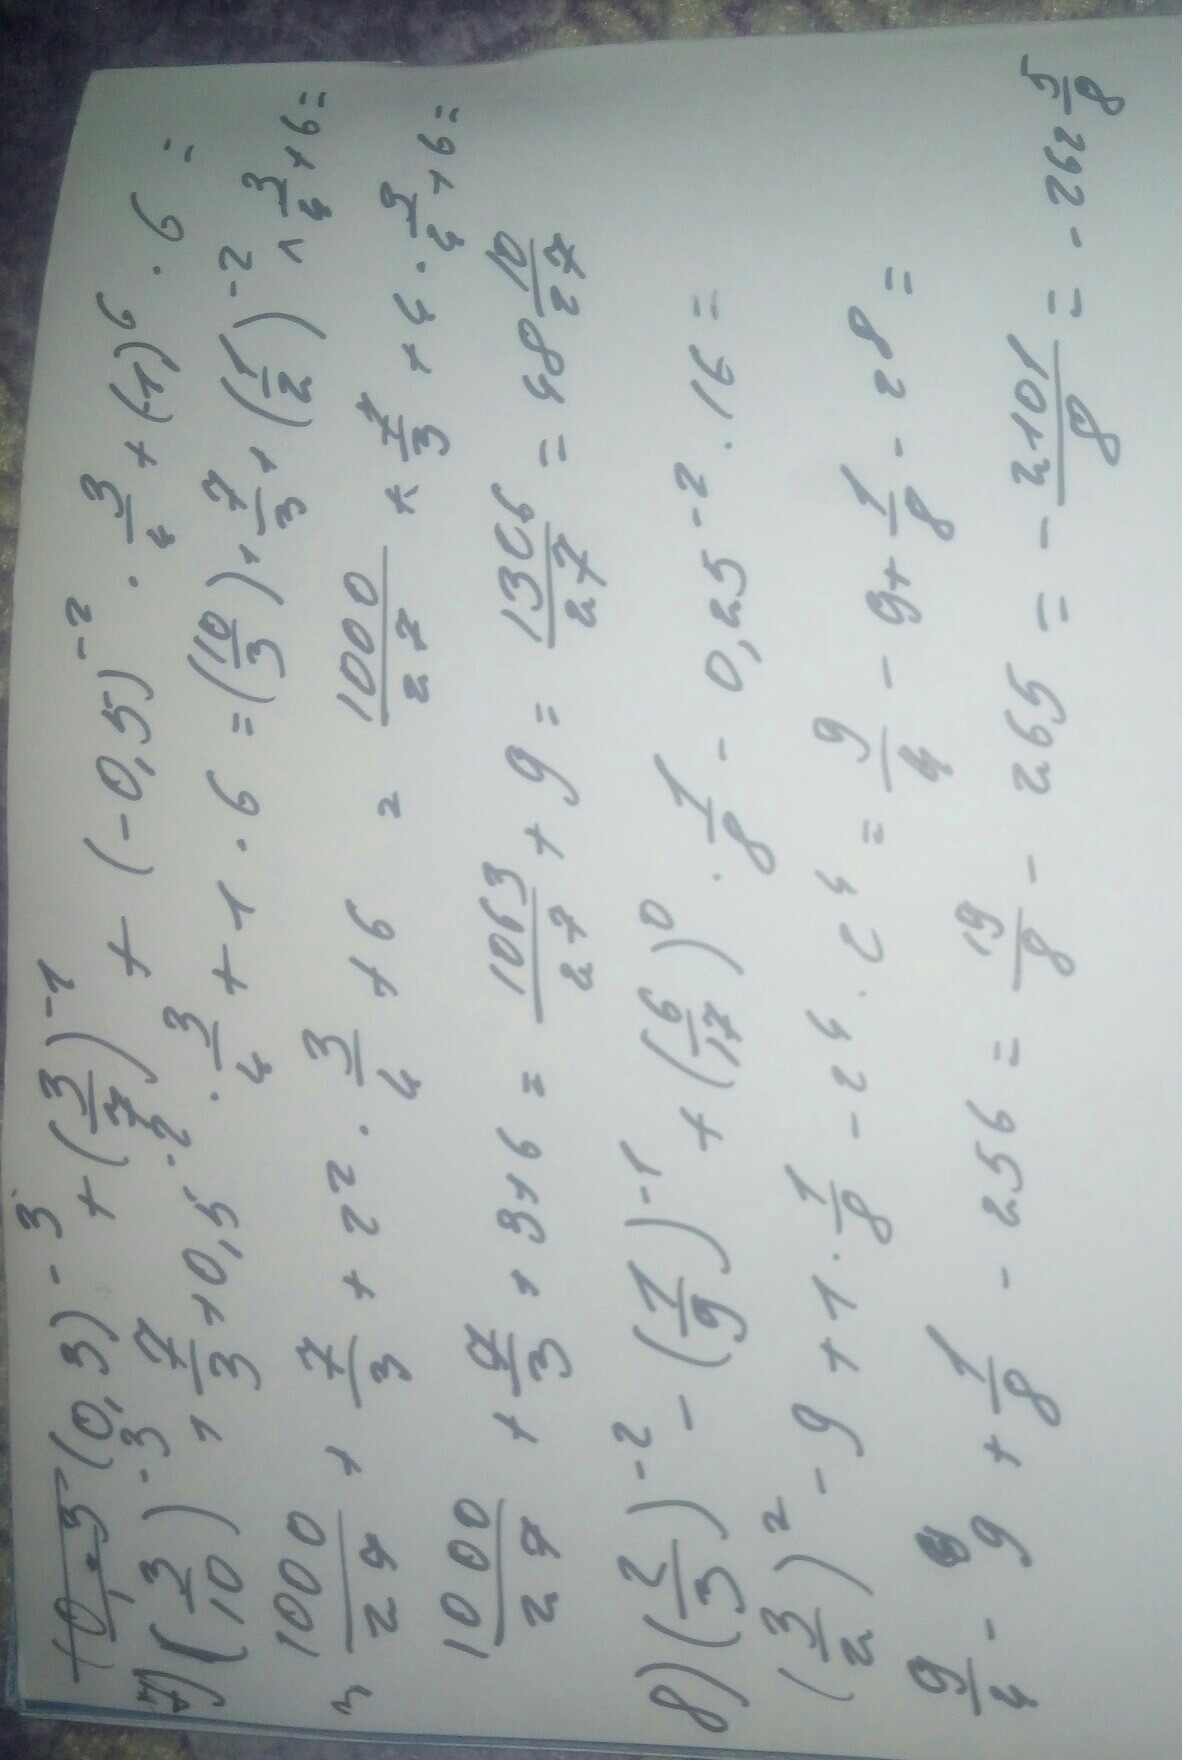 (0,3)^-3 + (3/7)^-1 + (-0,5)^-2 · 3/4 + (-1)^6 · 6 =
7) (3/10)^-3 + 7/3 + 0,5^-2 · 3/4 + 1 · 6 = (10/3) + 7/3 + (1/2)^-2 · 3/4 + 6 =
1000/27 + 7/3 + 2^2 · 3/4 + 6 = 1000/27 + 7/3 + 4 · 3/4 + 6 =
1000/27 + 7/3 + 3 + 6 = 1063/27 + 9 = 1306/27 = 48 10/27
8) (2/3)^-2 - (1/9)^-1 + (6/17)^0 · 1/8 - 0,25^-2 · 16 =
(3/2)^2 - 9 + 1 · 1/8 - 2^4 · 2^4 = 9/4 - 9 + 1/8 - 2^8 =
9/4 - 9 + 1/8 - 256 = 19/8 - 265 = - 2101/8 = - 262 5/8